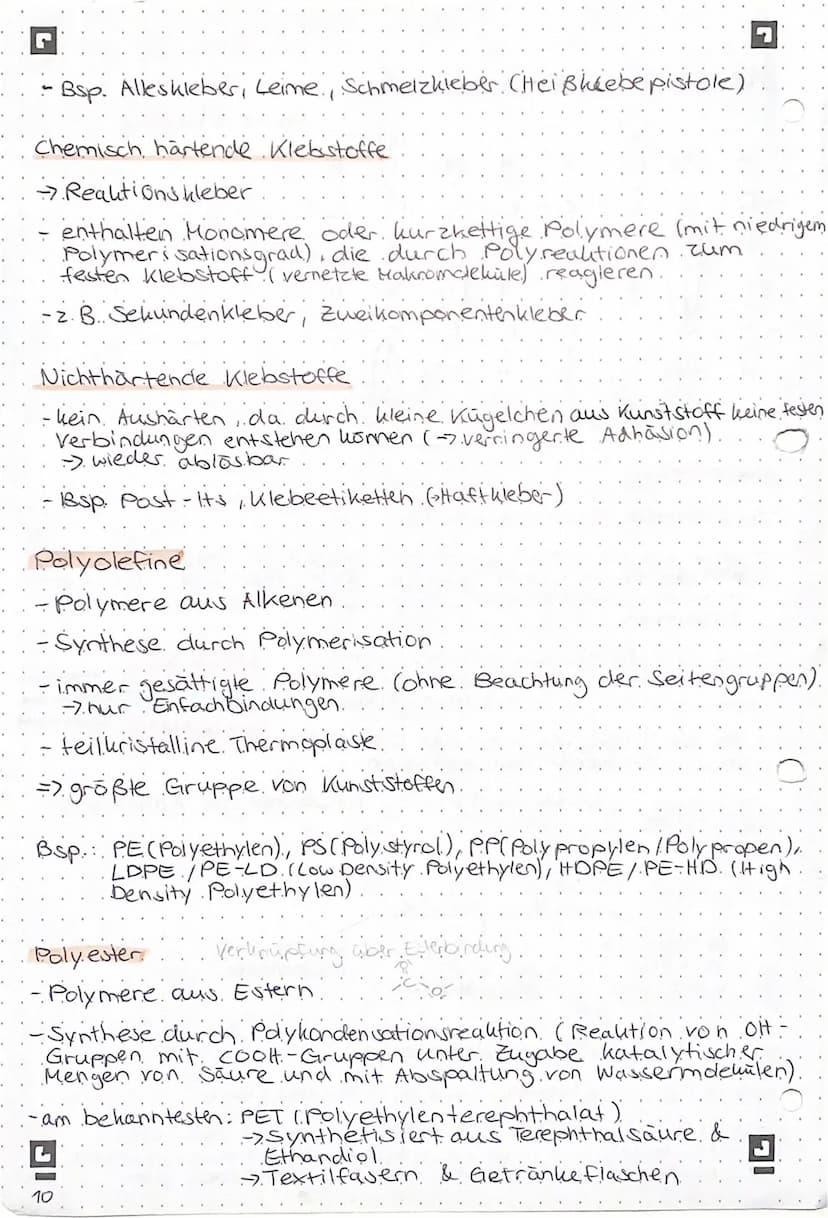 - Bsp. Alleskleber, Leime, Schmelzkleber (Heißklebepistole)
Chemisch härtende Klebstoffe
→ Reaktionskleber
- enthalten Monomere oder kurzkettige Polymere (mit niedrigem
Polymerisationsgrad), die durch Polyreaktionen zum
festen Klebstoff (vernetzte Makromoleküle) reagieren.
- z.B. Sekundenkleber, Zweikomponentenkleber
Nichthärtende Klebstoffe
- kein Aushärten, da durch kleine Kügelchen aus Kunststoff keine festen
Verbindungen entstehen können (→ verringerte Adhäsion)
→ wieder ablösbar
- Bsp. Post-Its, Klebeetiketten (→Haftkleber)
Polyolefine
- Polymere aus Alkenen
- Synthese durch Polymerisation
- immer gesättigte Polymere (ohne Beachtung der Seitengruppen)
→ nur Einfachbindungen
- teilkristalline Thermoplaste
=> größte Gruppe von Kunststoffen
Bsp.: PE (Polyethylen), PS (Polystyrol), PP (Polypropylen/Polypropen),
LDPE / PE-LD (Low Density Polyethylen), HDPE / PE-HD (High
Density Polyethylen)
Polyester Verknüpfung über Esterbindung
- Polymere aus Estern
- Synthese durch Polykondensationsreaktion (Reaktion von OH-
Gruppen mit COOH-Gruppen unter Zugabe katalytischer
Mengen von Säure und mit Abspaltung von Wassermolekülen)
- am bekanntesten: PET (Polyethylenterephthalat)
→ synthetisiert aus Terephthalsäure &
Ethandiol
→ Textilfasern & Getränkeflaschen
10